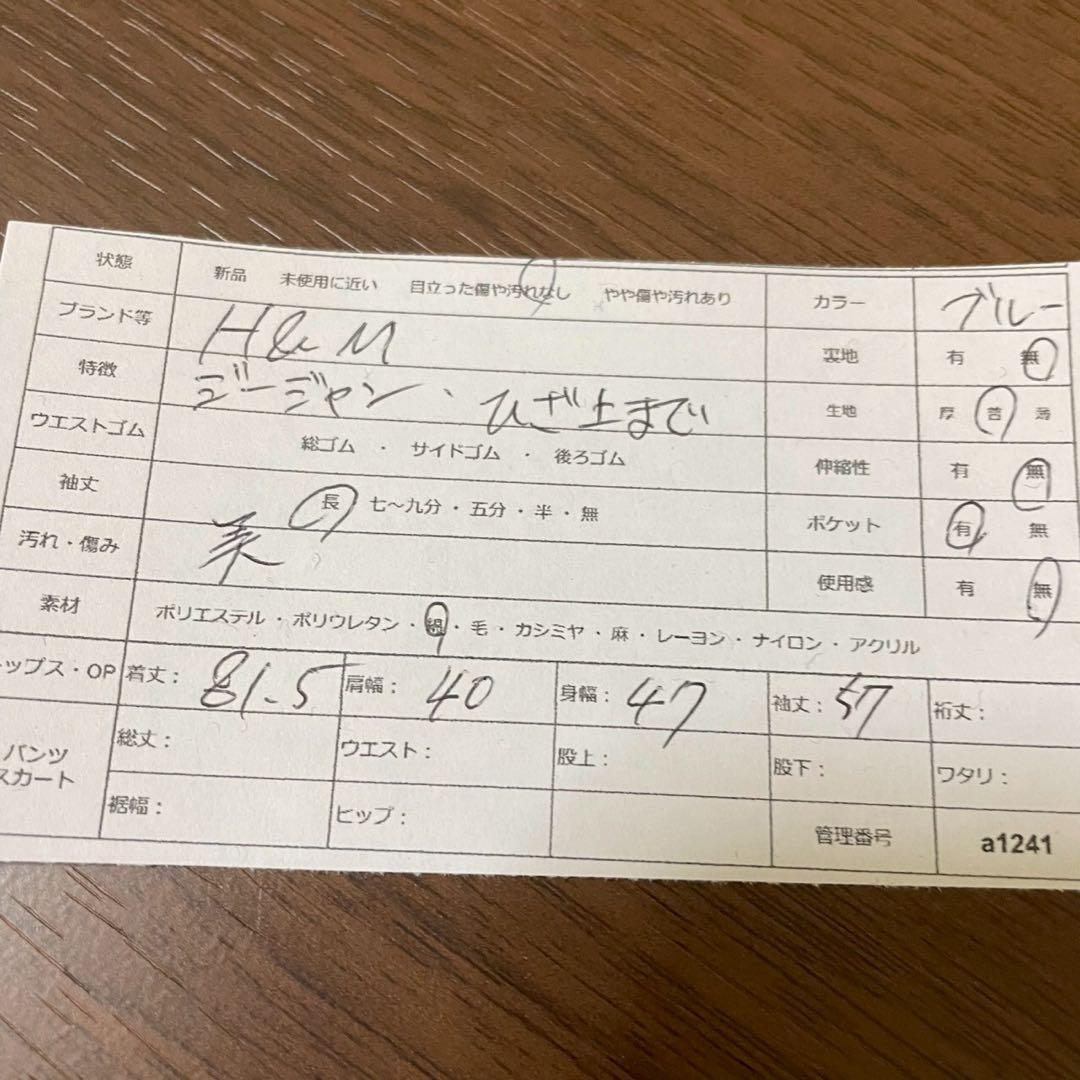 状態 新品 未使用に近い 目立った傷や汚れなし やや傷や汚れあり カラー ブルー
ブランド等 H&M 裏地 有 無
特徴 ジージャン・ひざ上まで 生地 厚 普 薄
ウエストゴム 総ゴム ・ サイドゴム ・ 後ろゴム 伸縮性 有 無
袖丈 長 七〜九分・五分・半・無 ポケット 有 無
汚れ・傷み 使用感 有 無
素材 ポリエステル・ポリウレタン・綿・毛・カシミヤ・麻・レーヨン・ナイロン・アクリル
ップス・OP 着丈: 81.5 肩幅: 40 身幅: 47 袖丈: 57 裄丈:
パンツ
スカート
総丈: ウエスト: 股上: 股下: ワタリ:
裾幅: ヒップ: 管理番号 a1241